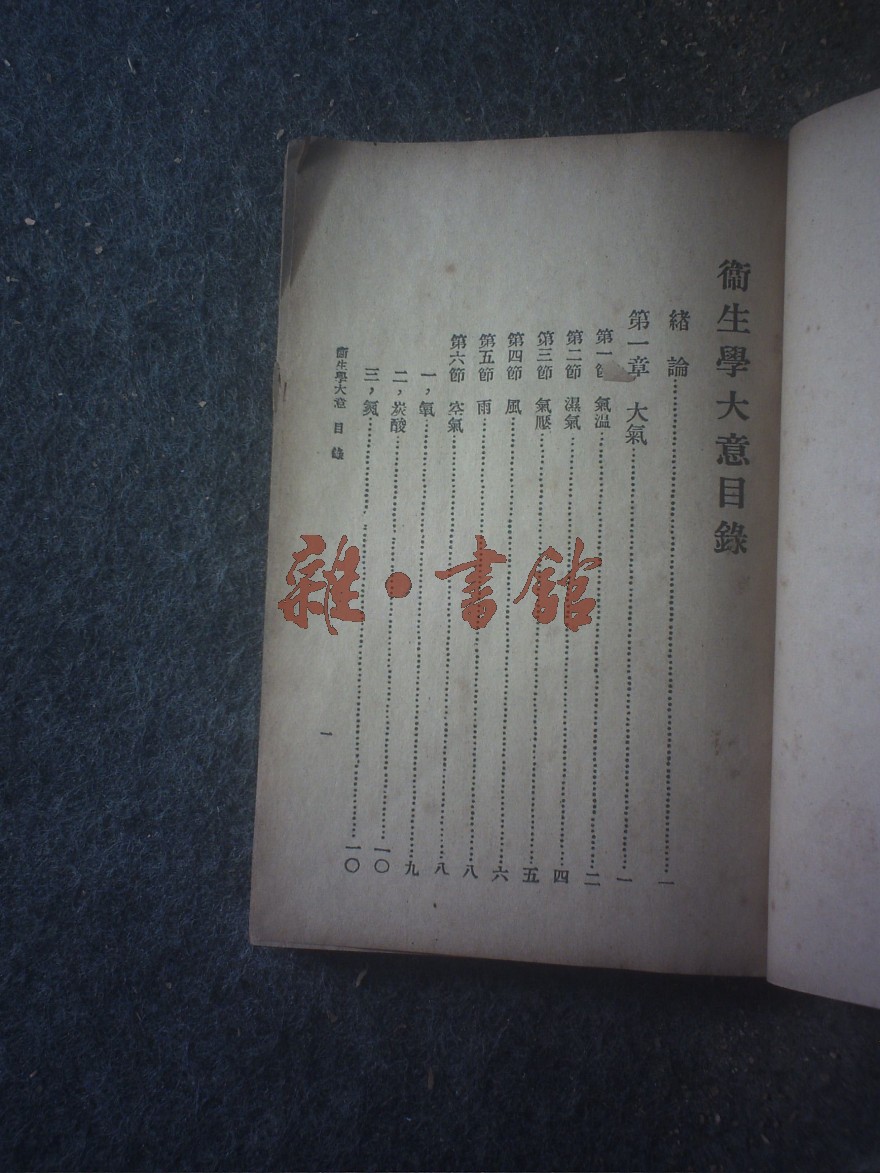 衞生學大意目錄
緒論……一
第一章 大氣……一
第一節 氣温……二
第二節 濕氣……四
第三節 氣壓……五
第四節 風……六
第五節 雨……八
第六節 空氣……八
一，氧……九
二，炭酸……一〇
三，氮……一〇
衞生學大意 目錄
一
雜·書館